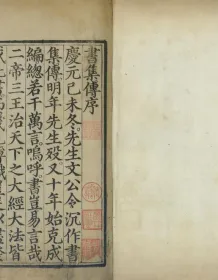 書集傳序
慶元己未冬先生文公令沉作書
集傳明年先生歿又十年始克成
編總若干萬言嗚呼書豈易言哉
二帝三王治天下之大經大法皆